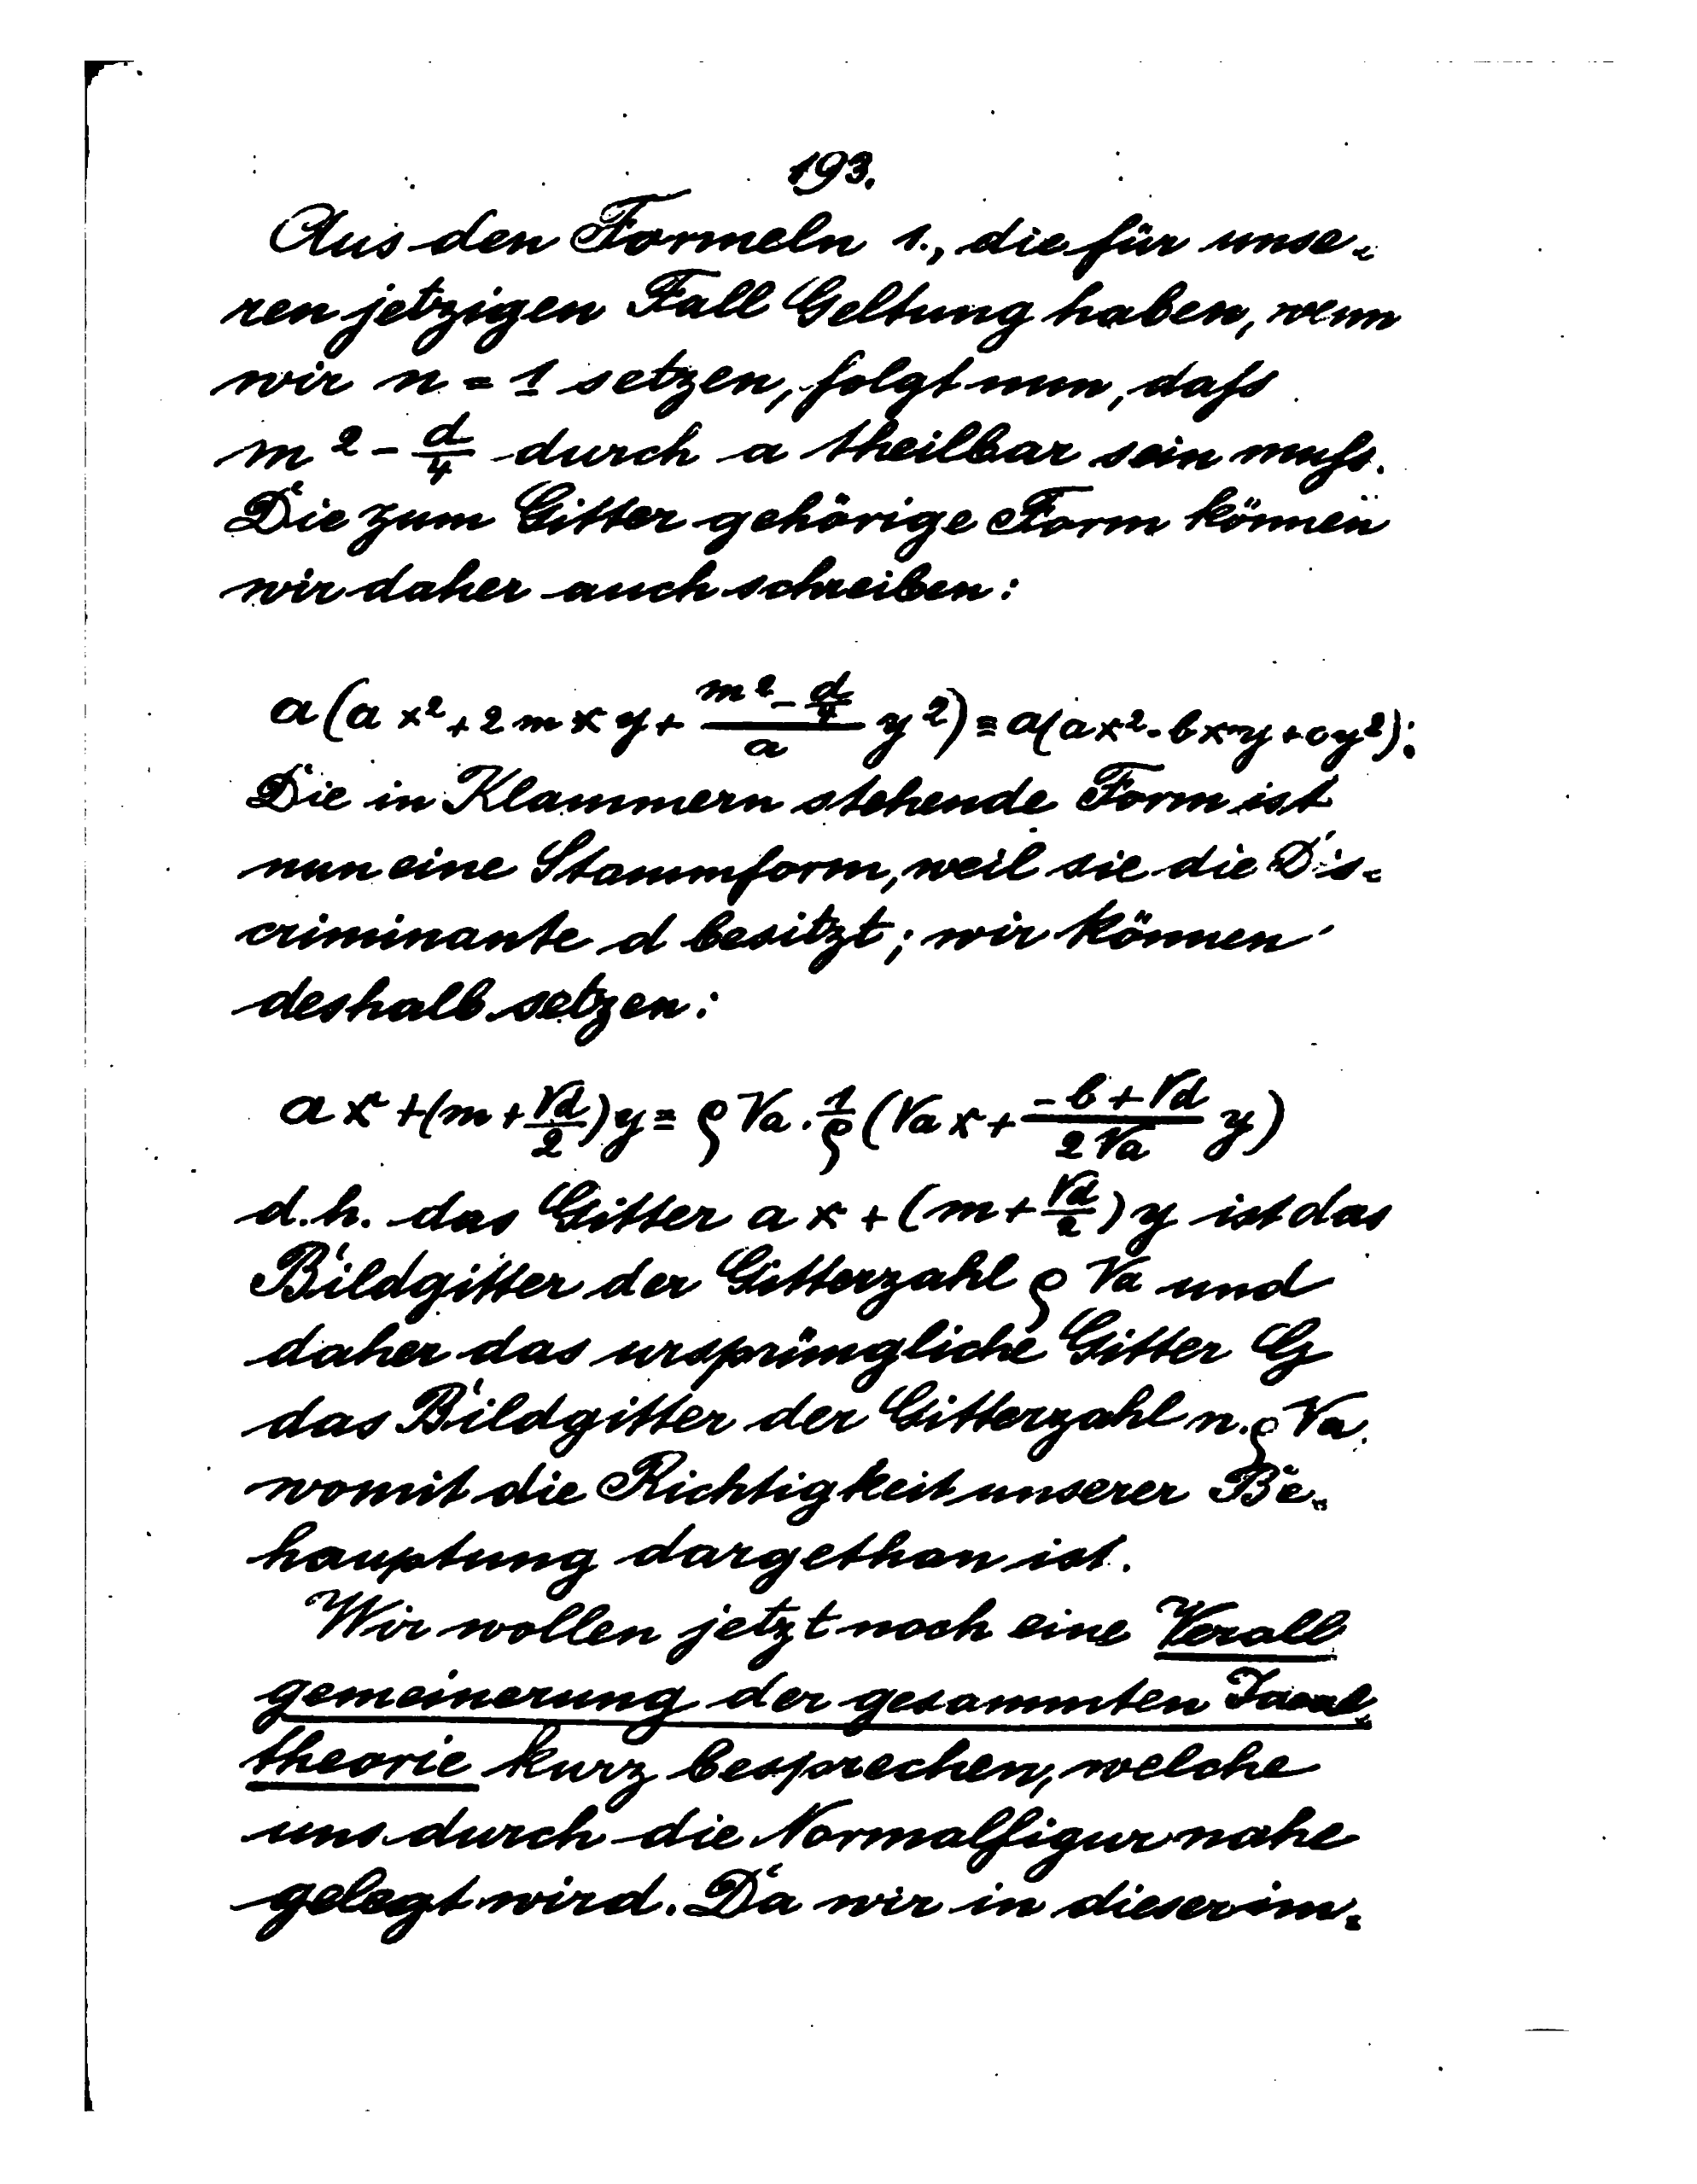 193.
Aus den Formeln 1., die für unse-
ren jetzigen Fall Geltung haben, wenn
wir n = 1 setzen, folgt nun, daſs
m² - d/4 durch a theilbar sein muſs.
Die zum Gitter gehörige Form können
wir daher auch schreiben:
a(ax² + 2mxy + (m² - d/4)/a y²) = a(ax² - bxy + cy²).
Die in Klammern stehende Form ist
nun eine Stammform, weil sie die Dis-
criminante d besitzt; wir können
deshalb setzen:
ax + (m + √d/2)y = ϱ√a · 1/ϱ (√a x + (-b + √d)/(2√a) y)
d.h. das Gitter ax + (m + √d/2)y ist das
Bildgitter der Gitterzahl ϱ√a und
daher das ursprüngliche Gitter G
das Bildgitter der Gitterzahl n·ϱ√a.
womit die Richtigkeit unserer Be-
hauptung dargethan ist.
Wir wollen jetzt noch eine Verall-
gemeinerung der gesammten Ideal-
theorie kurz besprechen, welche
uns durch die Normalfigur nahe
gelegt wird. Da wir in dieser im-